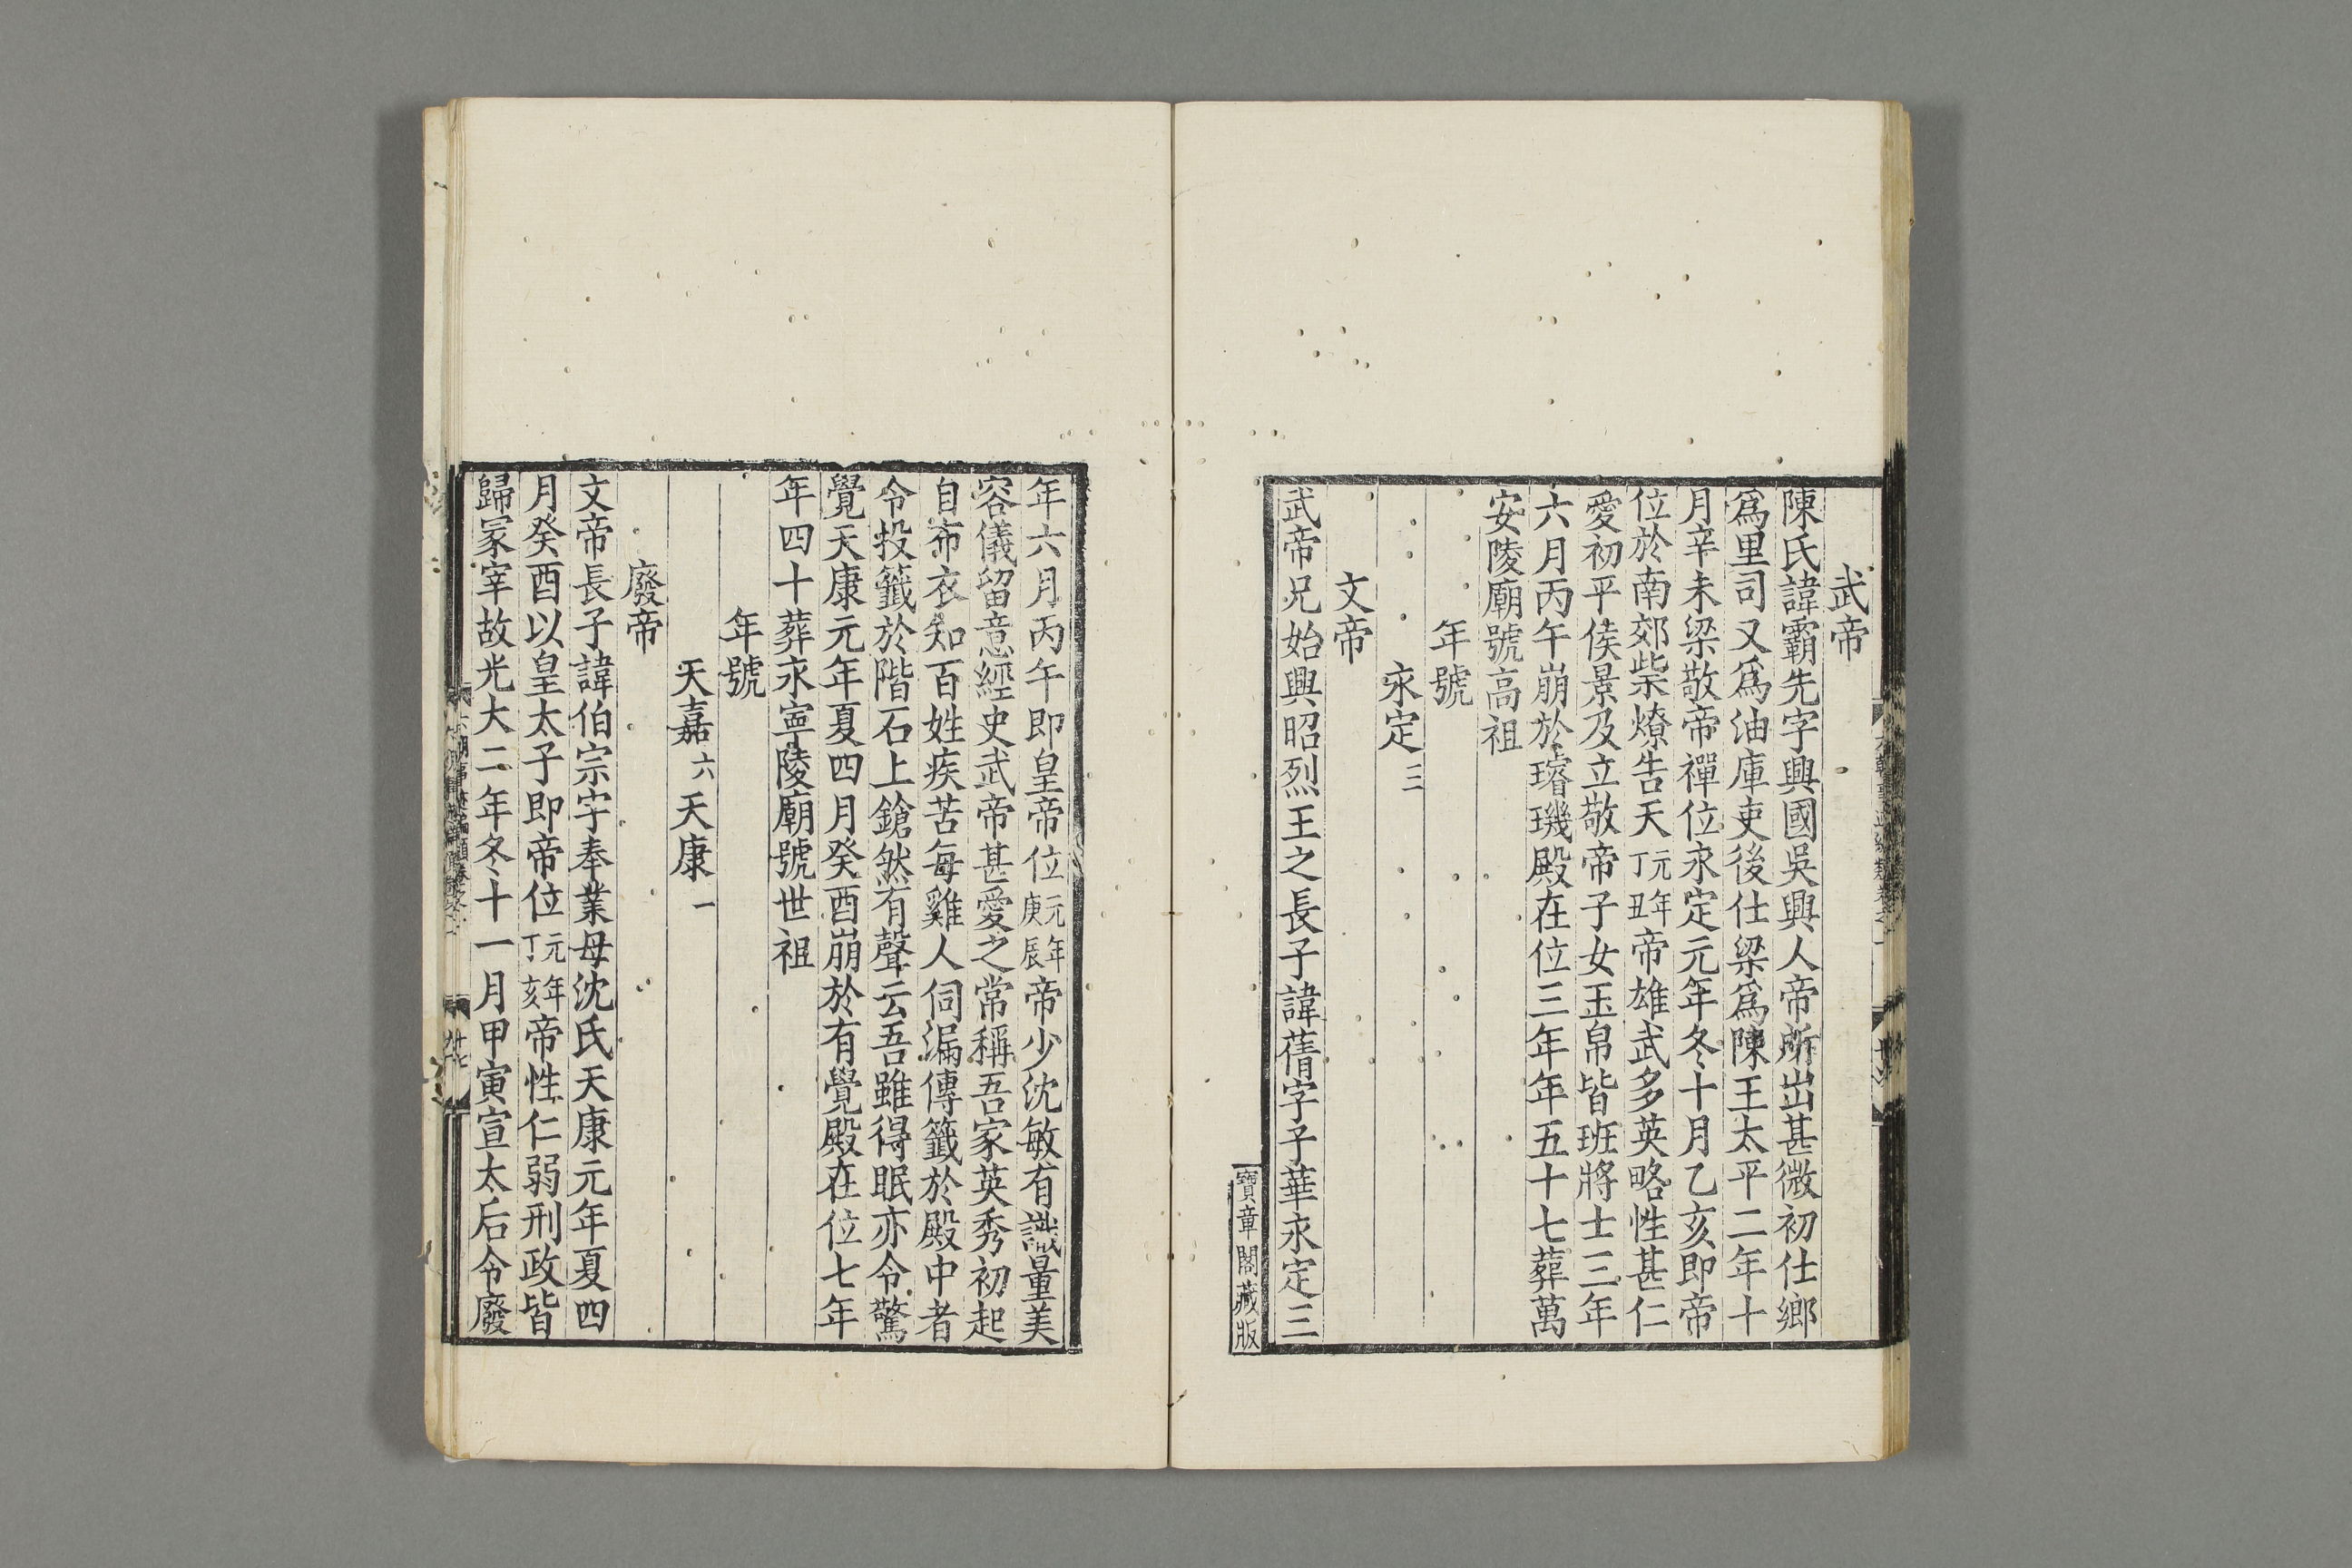 武帝
陳氏諱霸先字興國吳興人帝所出甚微初仕鄉
爲里司又爲油庫吏後仕梁爲陳王太平二年十
月辛未梁敬帝禪位永定元年冬十月乙亥即帝
位於南郊柴燎告天元年丁丑帝雄武多英略性甚仁
愛初平侯景及立敬帝子女玉帛皆班將士三年
六月丙午崩於璿璣殿在位三年年五十七葬萬
安陵廟號高祖
年號
永定三
文帝
武帝兄始興昭烈王之長子諱蒨字子華永定三
寶章閣藏版
年六月丙午即皇帝位元年庚辰帝少沈敏有識量美
容儀留意經史武帝甚愛之常稱吾家英秀初起
自布衣知百姓疾苦每雞人伺漏傳籤於殿中者
令投籤於階石上鎗然有聲云吾雖得眠亦令驚
覺天康元年夏四月癸酉崩於有覺殿在位七年
年四十葬永寧陵廟號世祖
年號
天嘉六天康一
廢帝
文帝長子諱伯宗字奉業母沈氏天康元年夏四
月癸酉以皇太子即帝位元年丁亥帝性仁弱刑政皆
歸冢宰故光大二年冬十一月甲寅宣太后令廢